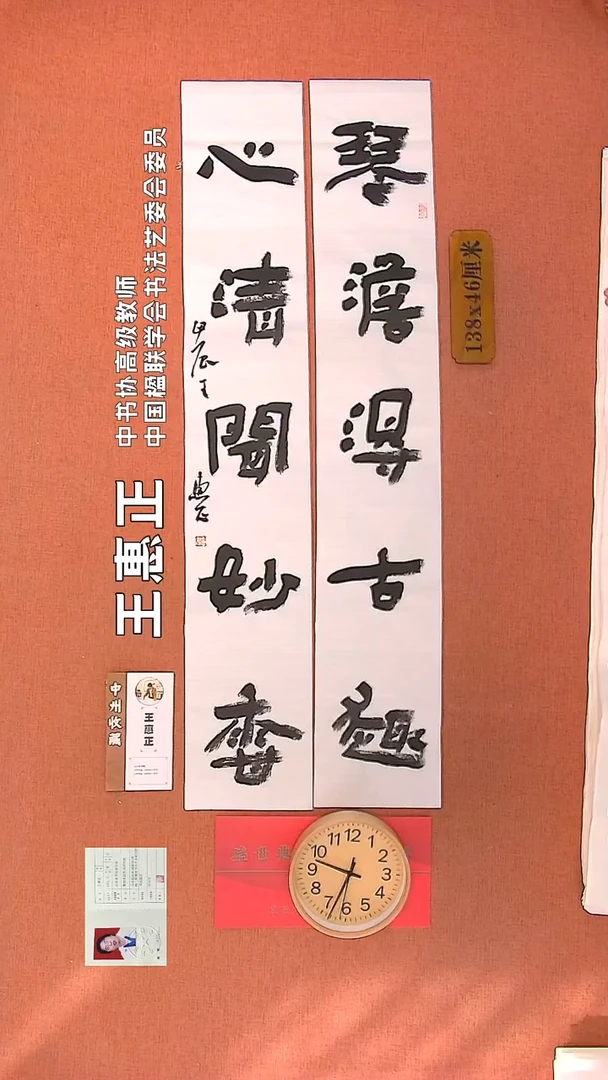 琴澹得古趣
心清闻妙香
甲辰王
惠正
138x46厘米
中书协高级教师
中国楹联学会书法艺委会委员
王惠正
王惠正
12
1
2
3
4
5
6
7
8
9
10
11